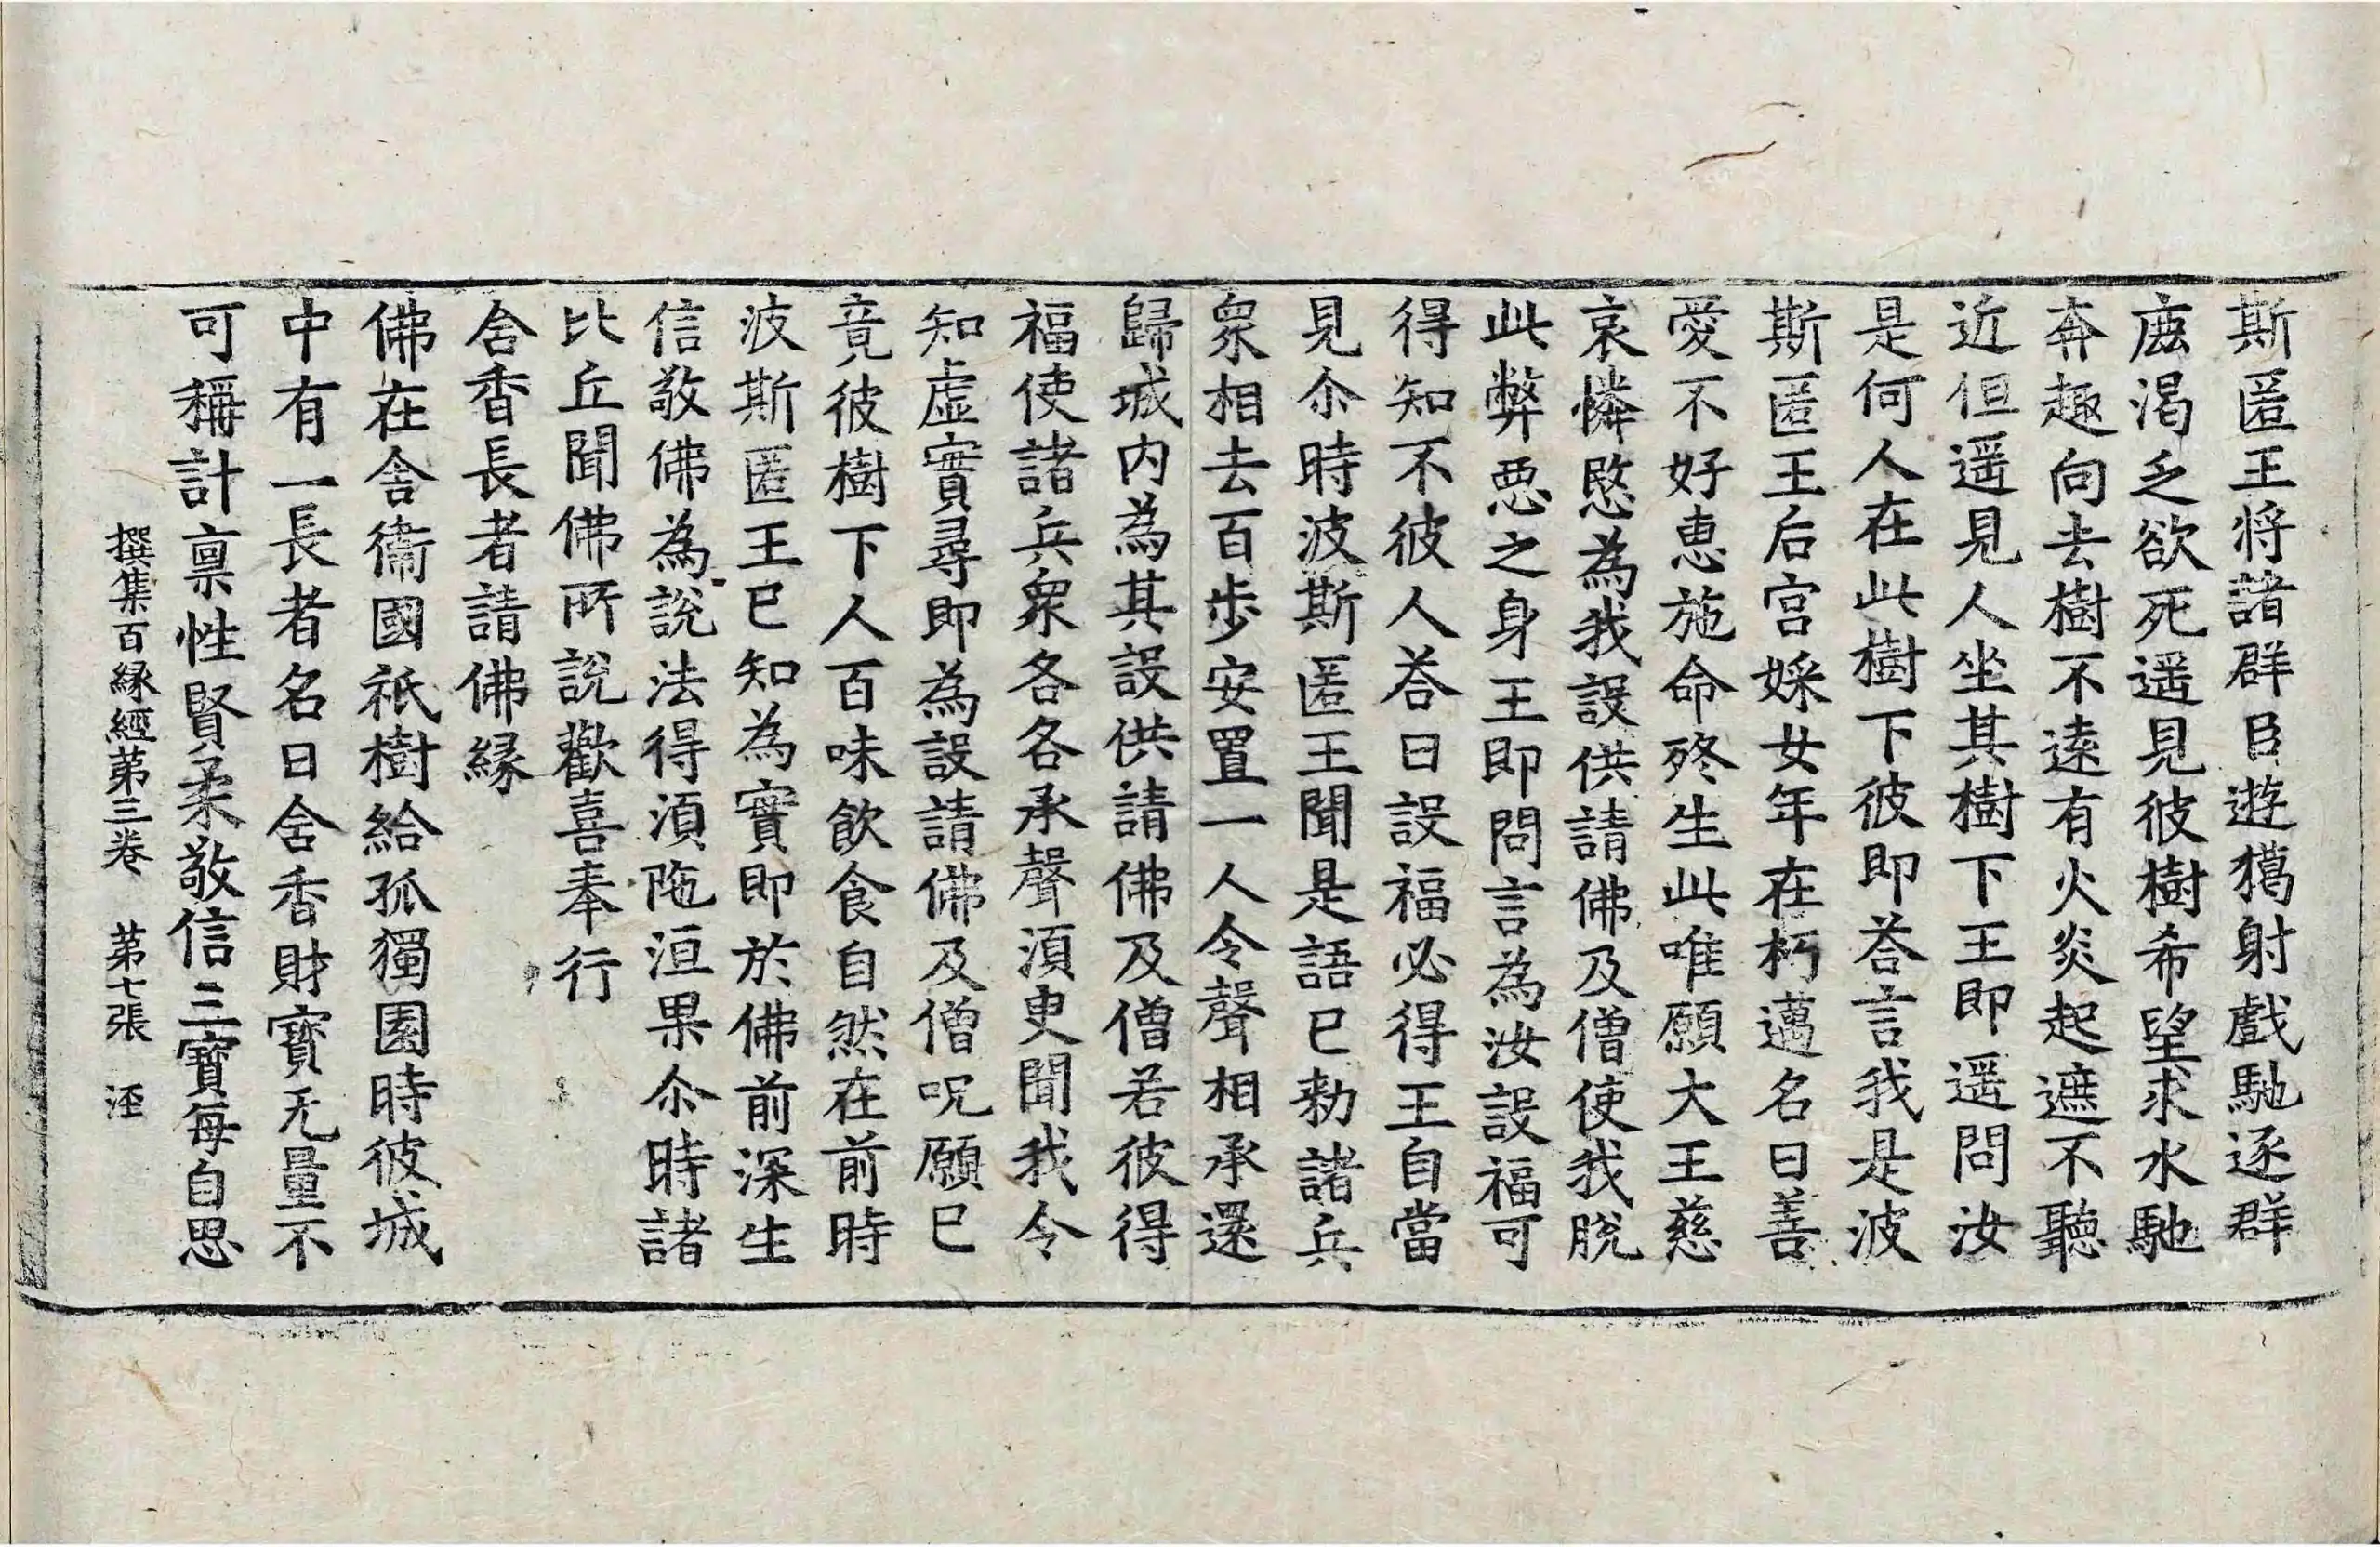 斯匿王将諸群臣遊獦射戲馳逐群
鹿渴乏欲死遥見彼樹希望求水馳
奔趣向去樹不遠有火炎起遮不聽
近但遥見人坐其樹下王即遥問汝
是何人在此樹下彼即荅言我是波
斯匿王后宫婇女年在朽邁名曰善
愛不好恵施命終生此唯願大王慈
哀憐愍為我設供請佛及僧使我脫
此弊惡之身王即問言為汝設福可
得知不彼人荅曰設福必得王自當
見尒時波斯匿王聞是語已勑諸兵
衆相去百步安置一人令聲相承還
歸城内為其設供請佛及僧若彼得
福使諸兵衆各各承聲湏臾聞我令
知虚實尋即為設請佛及僧呪願已
竟彼樹下人百味飲食自然在前時
波斯匿王已知為實即於佛前深生
信敬佛為說法得湏陁洹果尒時諸
比丘聞佛所說歡喜奉行
含香長者請佛縁
佛在舍衞國祇樹給孤獨園時彼城
中有一長者名曰含香財寳无量不
可稱計禀性賢柔敬信三寳每自思
撰集百縁經苐三卷　苐七張　涇